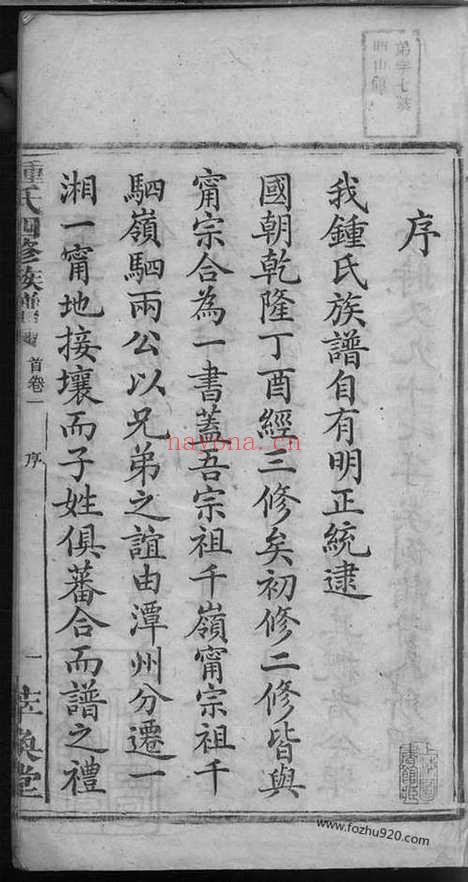 序
我鍾氏族譜自有明正統逮
國朝乾隆丁酉經三修矣初修二修皆與
甯宗合為一書蓋吾宗祖千嶺甯宗祖千
駟嶺駟兩公以兄弟之誼由潭州分遷一
湘一甯地接壤而子姓俱蕃合而譜之禮
鍾氏四修族譜
首卷一
序
一
堂
nayona.cn
www.fozhu920.com